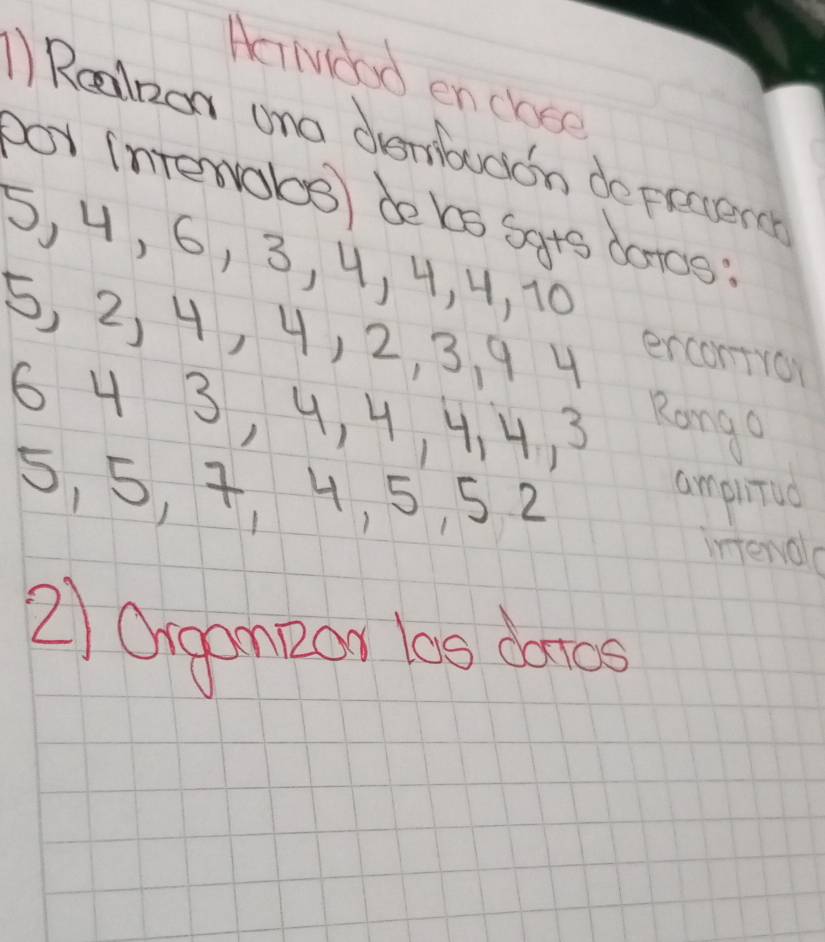 Actividad en clase
1) Realizar una distribución de frecuencia
por intervalos) de los sgts datos:
5, 4, 6, 3, 4, 4, 4, 10
5, 2, 4, 4, 2, 3, 9 4
6 4 3, 4, 4, 4, 4, 3
5, 5, 7, 4, 5, 5 2
encontrar
Rango
amplitud
intervalo
2) Organizar los datos